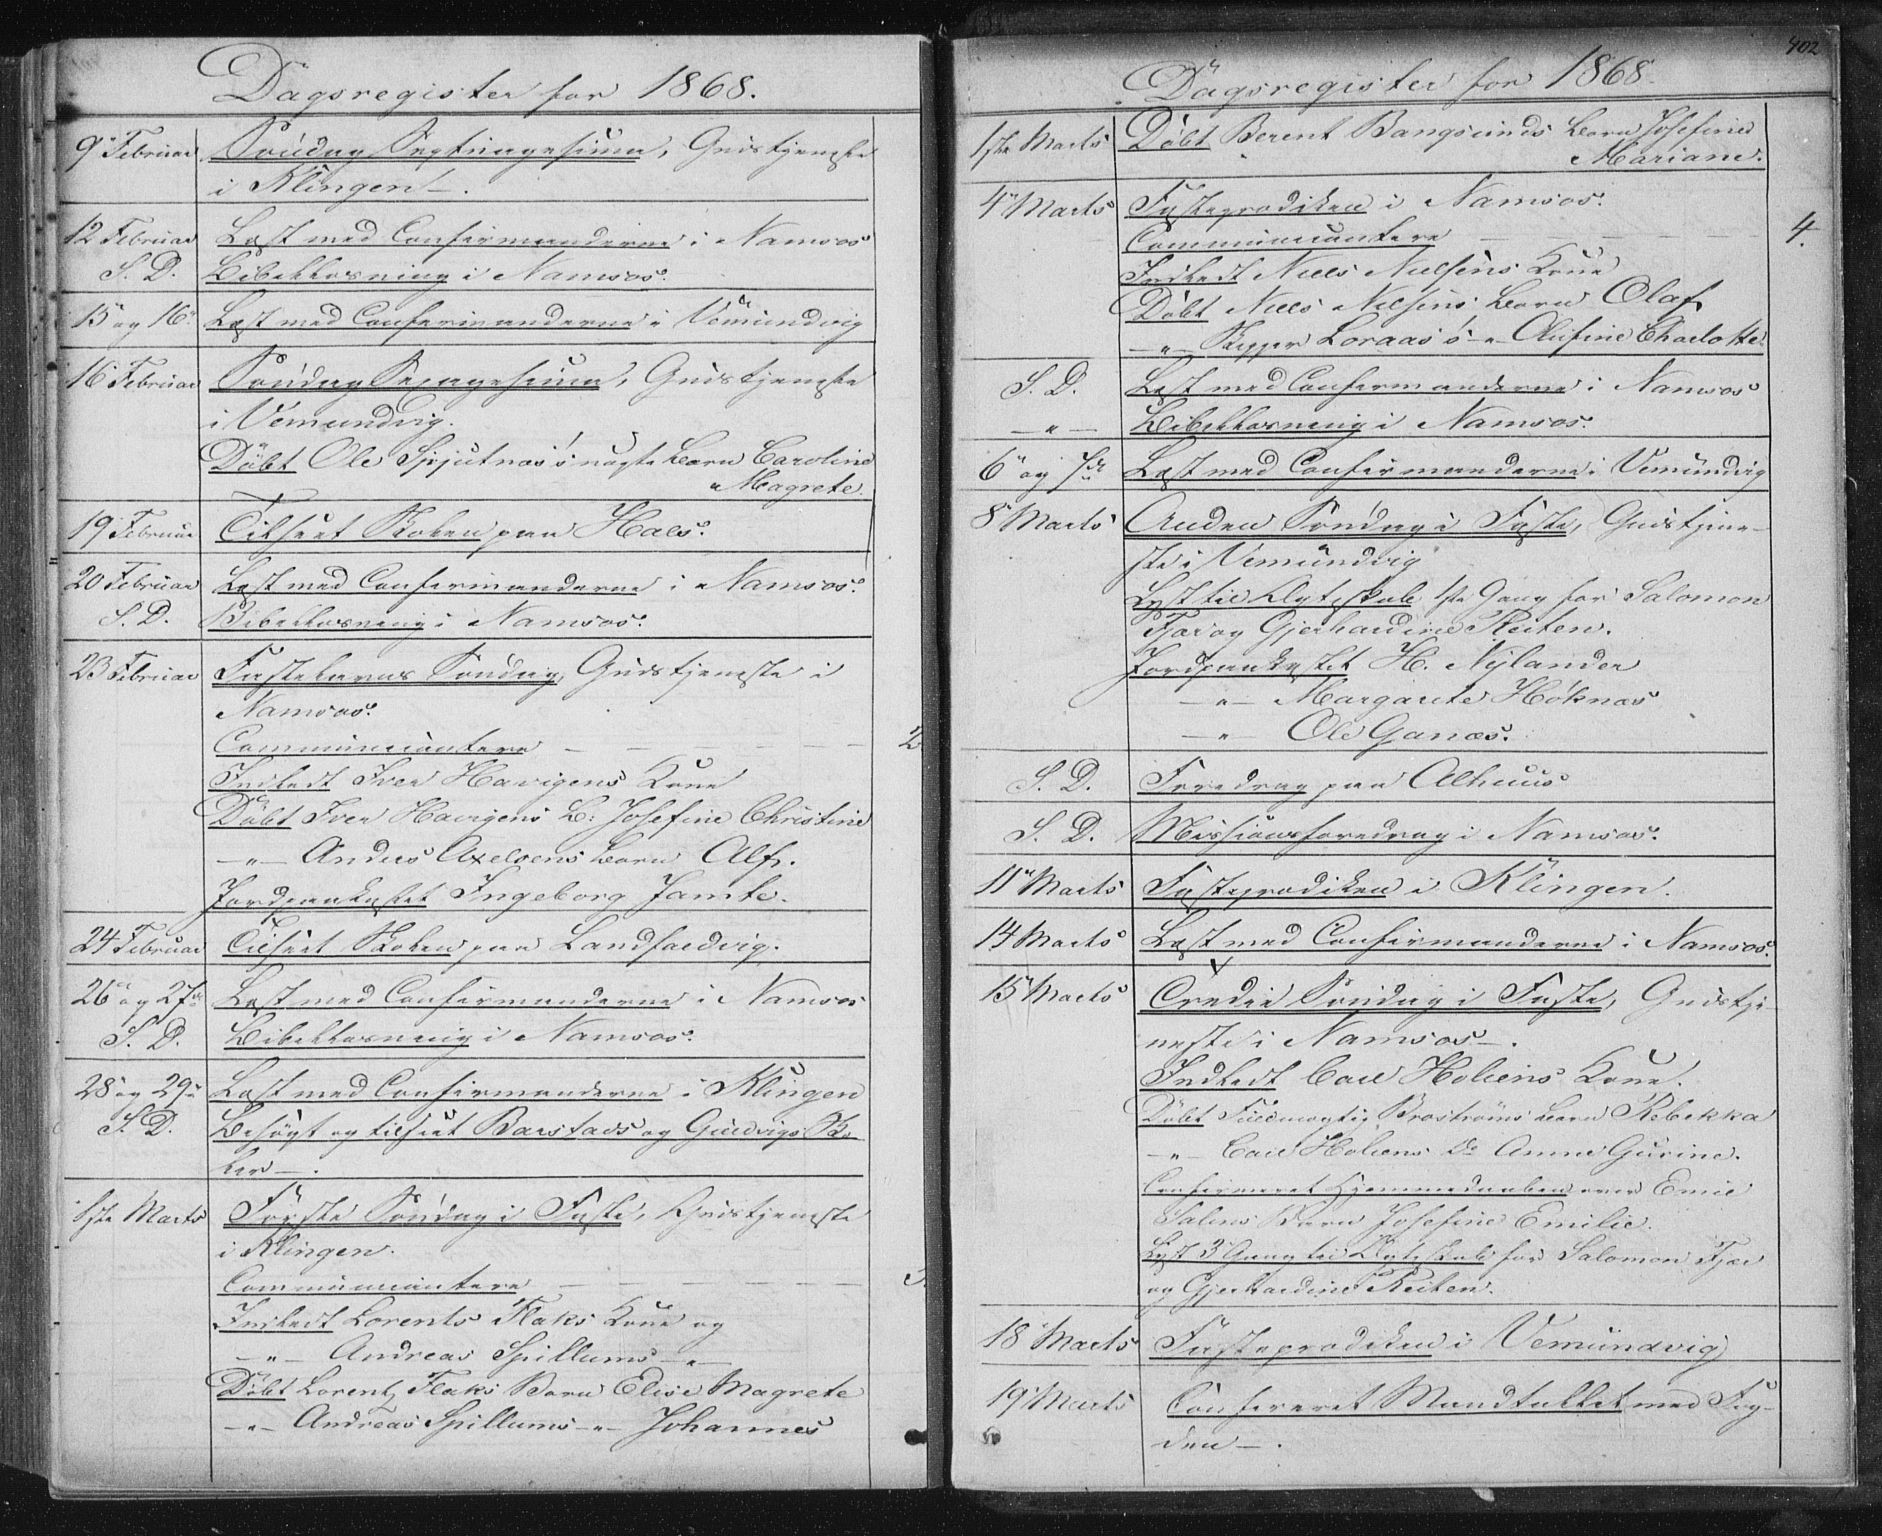 Dagsregister for 1868.
9de Februar Søndag Septuagesima, Gudstjeneste
i Klingen.
12 Februar Læst med Confirmanderne i Namsos
S. D. Bibellæsning i Namsos.
15 og 16 Læst med Confirmanderne i Vemundvig
16 Februar Søndag Sexagesima, Gudstjeneste
i Vemundvig.
Döbt Ole Spjutnæs's uægte Barn Caroline
Magrete.
19 Februar Tilseet Skolen paa Hals.
20 Februar Læst med Confirmanderne i Namsos.
S. D. Bibellæsning i Namsos.
23 Februar Fastelavns Søndag, Gudstjeneste i
Namsos.
Communicantere — — — — 2
Indledt Iver Havigens Kone
Döbt Iver Havigens B: Josefine Christine
—"— Anders Axelsens Barn Alf.
Jordpaakastet Ingeborg Jamte.
24 Februar Tilseet Skolen paa Landfaldvig.
26 og 27de Læst med Confirmanderne i Namsos
S. D. Bibellæsning i Namsos.
28 og 29de Læst med Confirmanderne i Klingen
S. D. Besögt og tilseet Barstads og Guldvigs Sko
ler —.
1ste Marts Förste Söndag i Faste, Gudstjeneste
i Klingen.
Communicantere — — — —
Indledt Lorents Flaks Kone og
—"— Andreas Spillums —"—
Döbt Lorentz Flaks Barn Elise Magrete
—"— Andreas Spillums —"— Johannes
402
Dagsregister for 1868.
1ste Marts Döbt Berent Bangsunds Barn Josefine
Mariane.
4 Marts Fasteprædiken i Namsos.
Communicantere — — — — 4.
Indledt Niels Nielsens Kone
Döbt Niels Nielsens Barn Olaf
—"— Skipper Loraas's —"— Olufine Charlotte
S. D. Læst med Confirmanderne i Namsos
—"— Bibellæsning i Namsos.
6 og 7de Læst med Confirmanderne i Vemundvig
8 Marts Anden Söndag i Faste, Gudstjene-
ste i Vemundvig
Lyst til Ægteskab 1ste Gang for Salomon
Fjær og Gjerhardine Reiten.
Jordpaakastet H. Nylander
—"— Margarete Höknæs
—"— Ole Ganæs.
S. D. Foredrag paa Alhuus
S. D. Missionsforedrag i Namsos.
11 Marts Fasteprædiken i Klingen.
14 Marts Læst med Confirmanderne i Namsos.
15 Marts Tredie Söndag i Faste, Gudstje-
neste i Namsos —.
Indledt Carl Holiens Kone.
Döbt Fuldmægtig Broströms Barn Rebekka
—"— Carl Holiens Do Anne Gurine.
Confirmeret Hjemmedaaben over Emil
Salens Barn Josefine Emilie.
Lyst 3 Gang til Ægteskab for Salomon Fjær
og Gjerhardine Reiten.
18 Marts Fasteprædiken i Vemundvig
19 Marts Confereret Mandtallet med Fog-
den —.